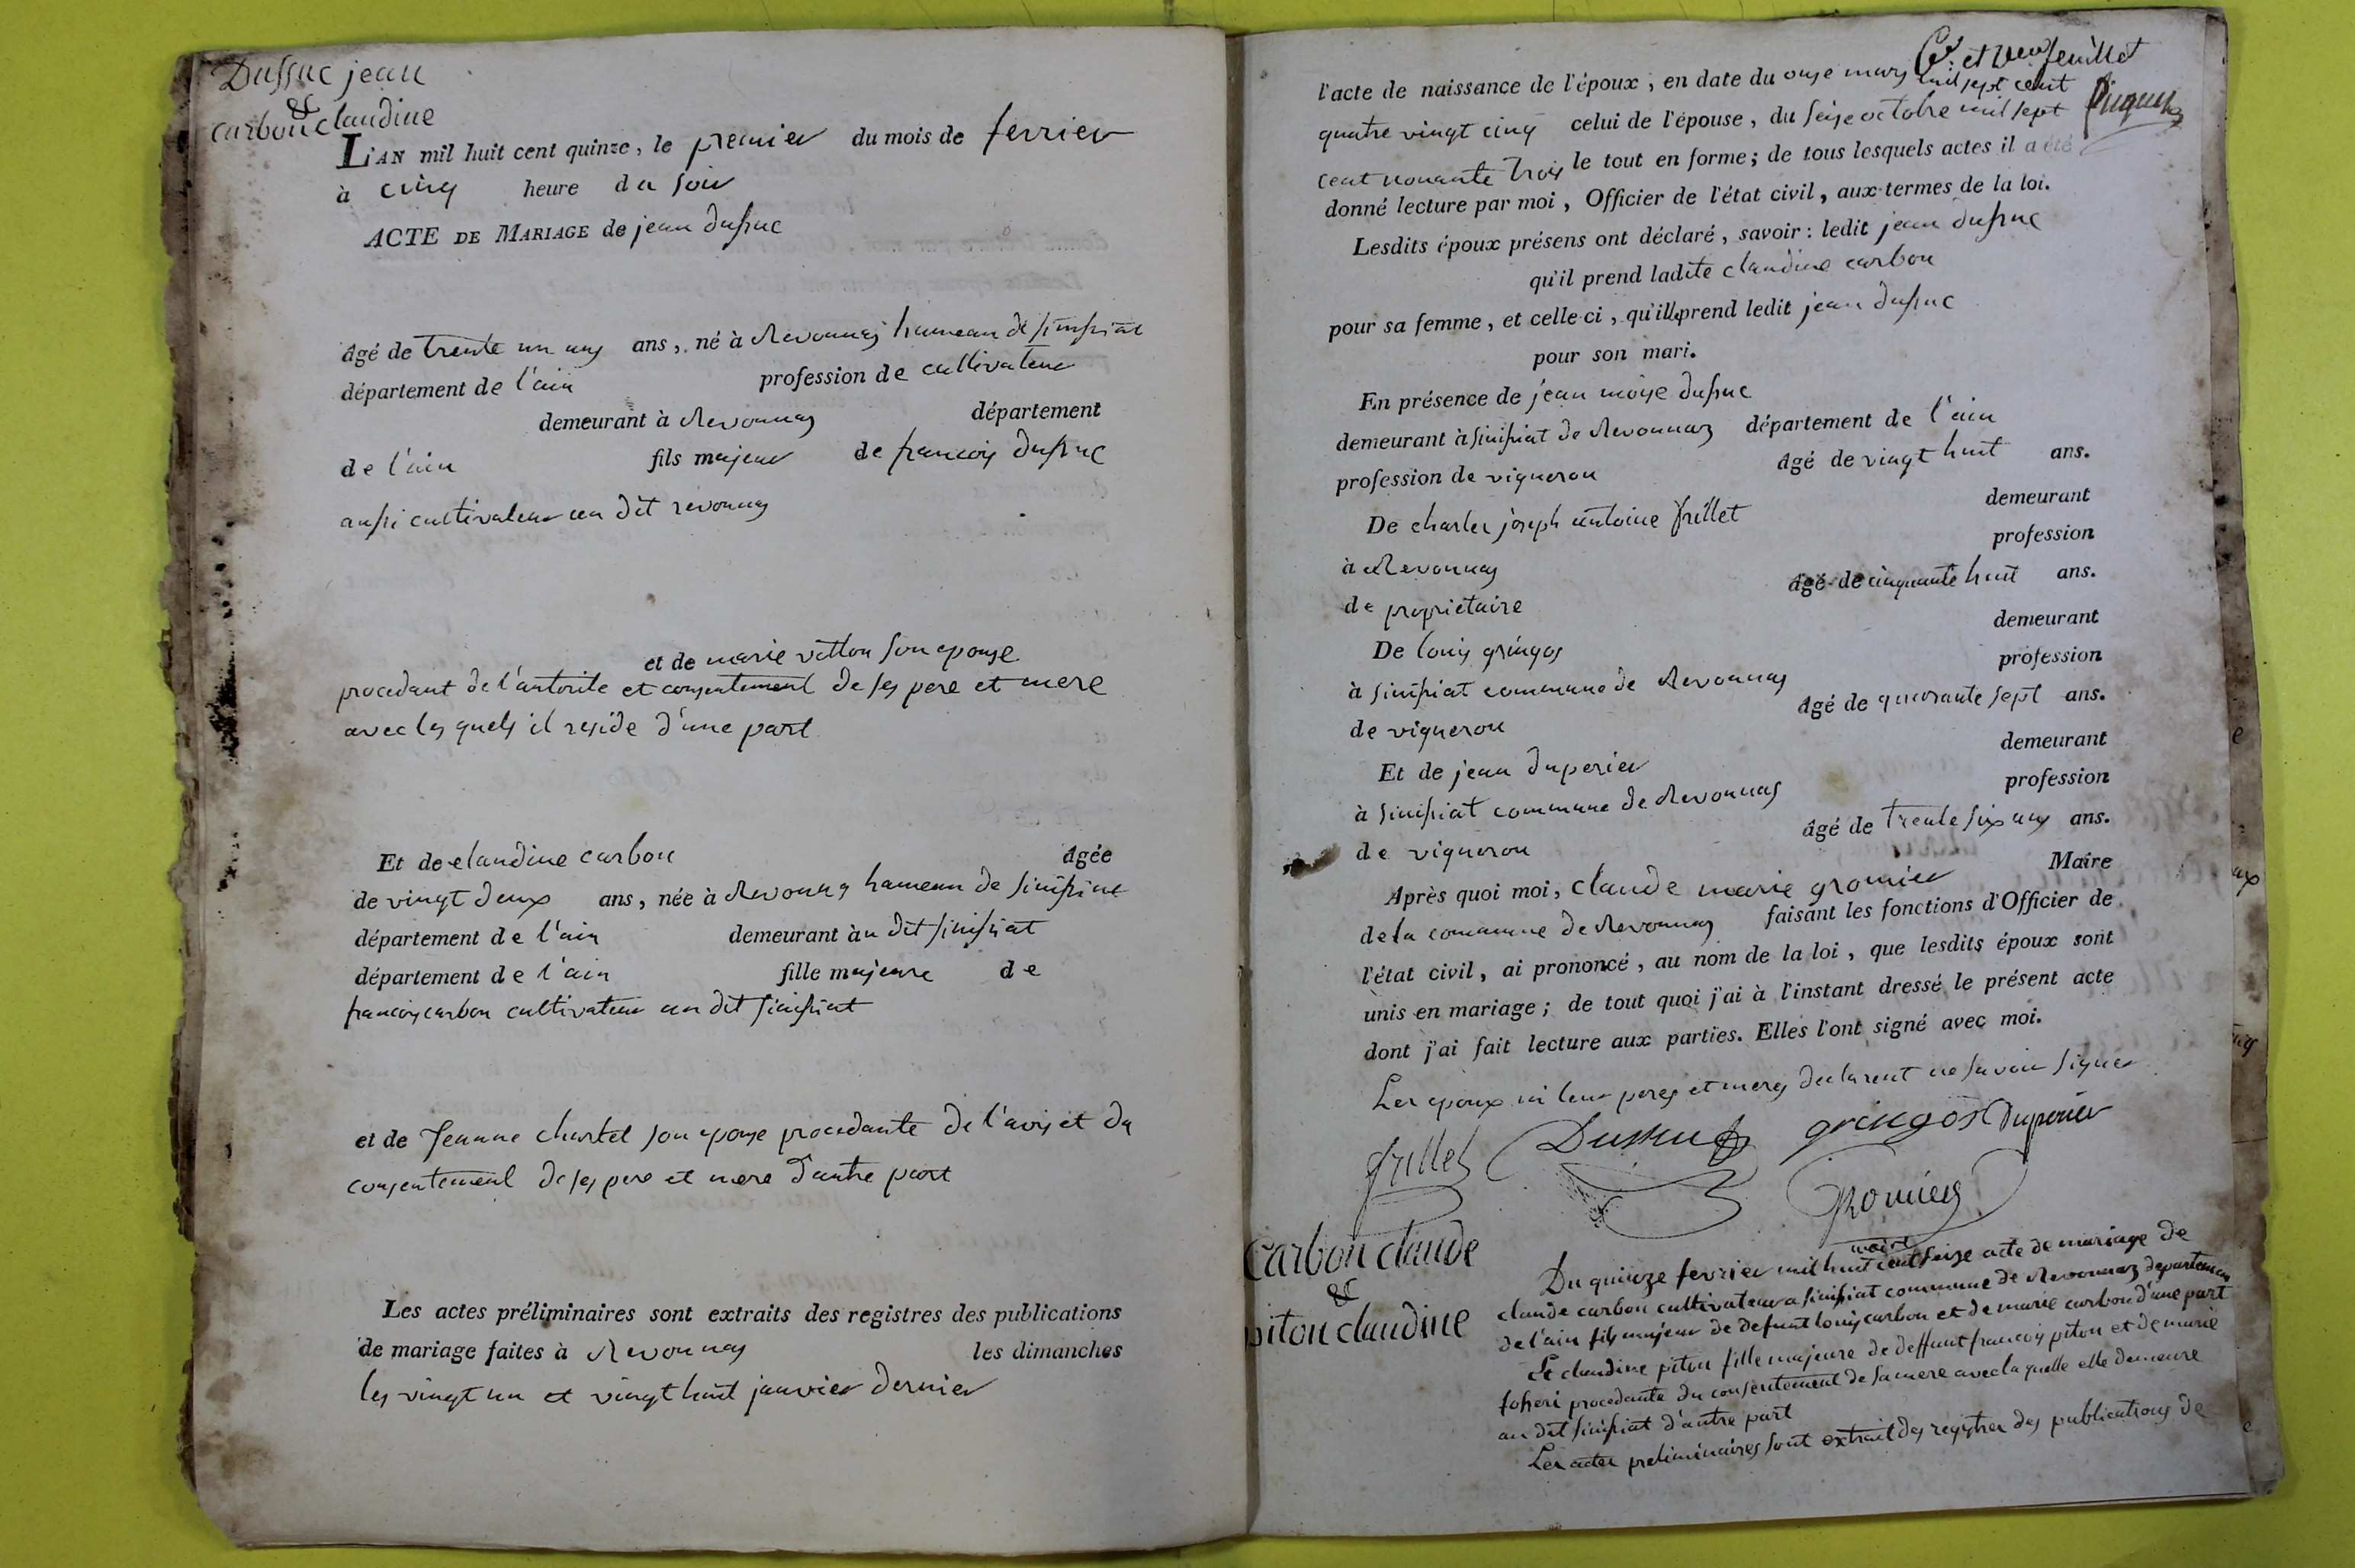 Dussuc jean
&
carbon claudine
L'AN mil huit cent quinze, le premier du mois de fevrier
à cinq heure du soir
ACTE DE MARIAGE de jean dussuc
âgé de trente un ans ans, né à Revonnas hameau de simsiat
département de l'ain profession de cultivateur
demeurant à Revonnas département
de l'ain fils majeur de francois dussuc
aussi cultivateur au dit revonnas
et de marie vitton son epouse
procedant de l'autorite et consentement de ses pere et mere
avec les quels il reside d'une part
Et de claudine carbon âgée
de vingt deux ans, née à Revonnas hameau de sinissiat
département de l'ain demeurant àu dit sinissiat
département de l'ain fille majeure de
francois carbon cultivateur au dit sinissiat
et de Jeanne chartel son epouse procedante de l'avis et du
consentement de ses pere et mere d'autre part
Les actes préliminaires sont extraits des registres des publications
de mariage faites à Revonnas les dimanches
les vingt un et vingt huit janvier dernier
et feuillet
l'acte de naissance de l'époux, en date du onze mars mil sept cent
quatre vingt cinq celui de l'épouse, du seize octobre mil sept
cent nonante trois le tout en forme; de tous lesquels actes il a été
donné lecture par moi, Officier de l'état civil, aux termes de la loi.
Lesdits époux présens ont déclaré, savoir: ledit jean dussuc
qu'il prend ladite claudine carbon
pour sa femme, et celle-ci, qu'elle prend ledit jean dussuc
pour son mari.
En présence de jean moyse dussuc
demeurant à sinissiat de Revonnaz département de l'ain
profession de vigneron âgé de vingt huit ans.
De charles joseph antoine frillet demeurant
à Revonnas profession
de proprietaire âgé de cinquante huit ans.
De louis gringos demeurant
à sinissiat commune de Revonnas profession
de vigneron âgé de quarante sept ans.
Et de jean duperier demeurant
à sinissiat commune de Revonnas profession
de vigneron âgé de trente six ans ans.
Après quoi moi, claude marie gromier Maire
de la commune de Revonnas faisant les fonctions d'Officier de
l'état civil, ai prononcé, au nom de la loi, que lesdits époux sont
unis en mariage; de tout quoi j'ai à l'instant dressé le présent acte
dont j'ai fait lecture aux parties. Elles l'ont signé avec moi.
Les epoux ni leur peres et meres declarent ne savoir signer
frillet Dussuc gringos Duperier
Gromier
maire
Carbon claude
&
piton claudine
Du quinze fevrier mil huit cent seize acte de mariage de
claude carbon cultivateur a sinissiat commune de Revonnaz departement
de l'ain fils majeur de defunt louis carbon et de marie carbon d'une part
Et claudine piton fille majeure de deffunt francois piton et de marie
procedante du consentement de sa mere avec la quelle elle demeure
au dit sinissiat d'autre part
Les actes preliminaires sont extrait des registres des publications de